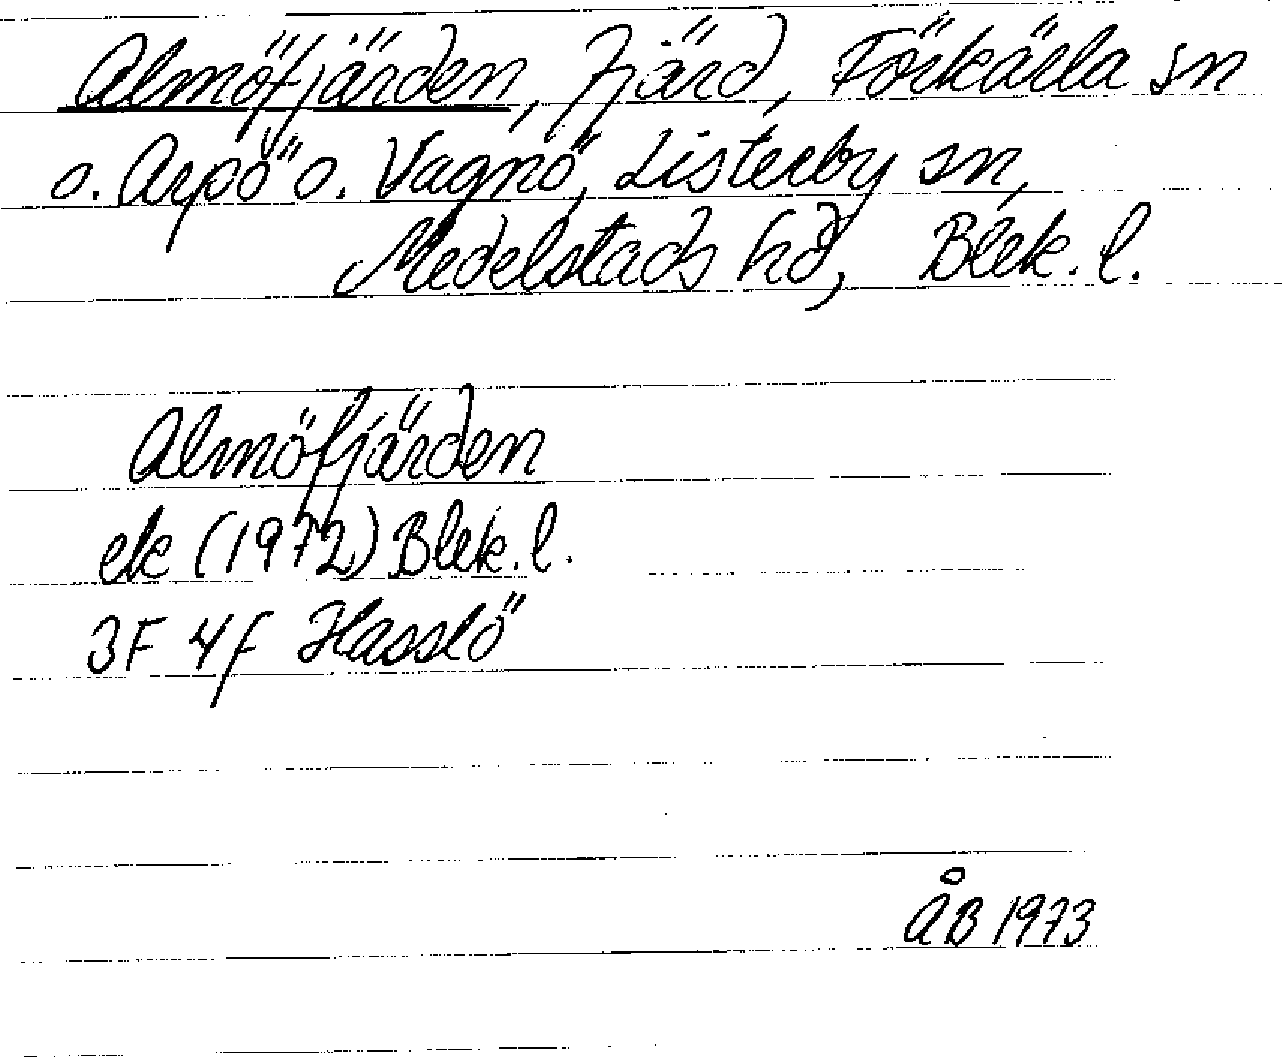 Almöfjärden, fjärd, Förkärla sn
o. Arpö o. Vagnö, Listerby sn,
Medelstads hd, Blek. l.
Almöfjärden
ek (1972) Blek. l.
3F 4f Hasslö
ÅB 1973